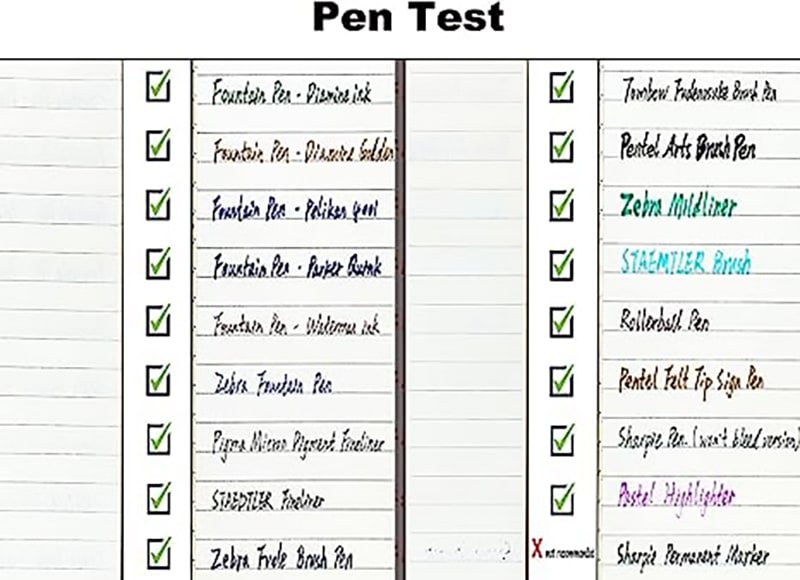 Pen Test
Fountain Pen - Diamine ink
Fountain Pen - Diamine Golden
Fountain Pen - Pelikan 4001
Fountain Pen - Parker Quink
Fountain Pen - ink
Zebra Fountain Pen
Pigma Micron Pigment Fineliner
STAEDTLER Fineliner
Zebra Brush Pen
Tombow Fudenosuke Brush Pen
Pentel Arts Brush Pen
Zebra Mildliner
STAEMTLER Brush
Rollerball Pen
Pentel Felt Tip Sign Pen
Sharpie Pen (won't bleed version)
Pastel Highlighter
X not recommended Sharpie Permanent Marker